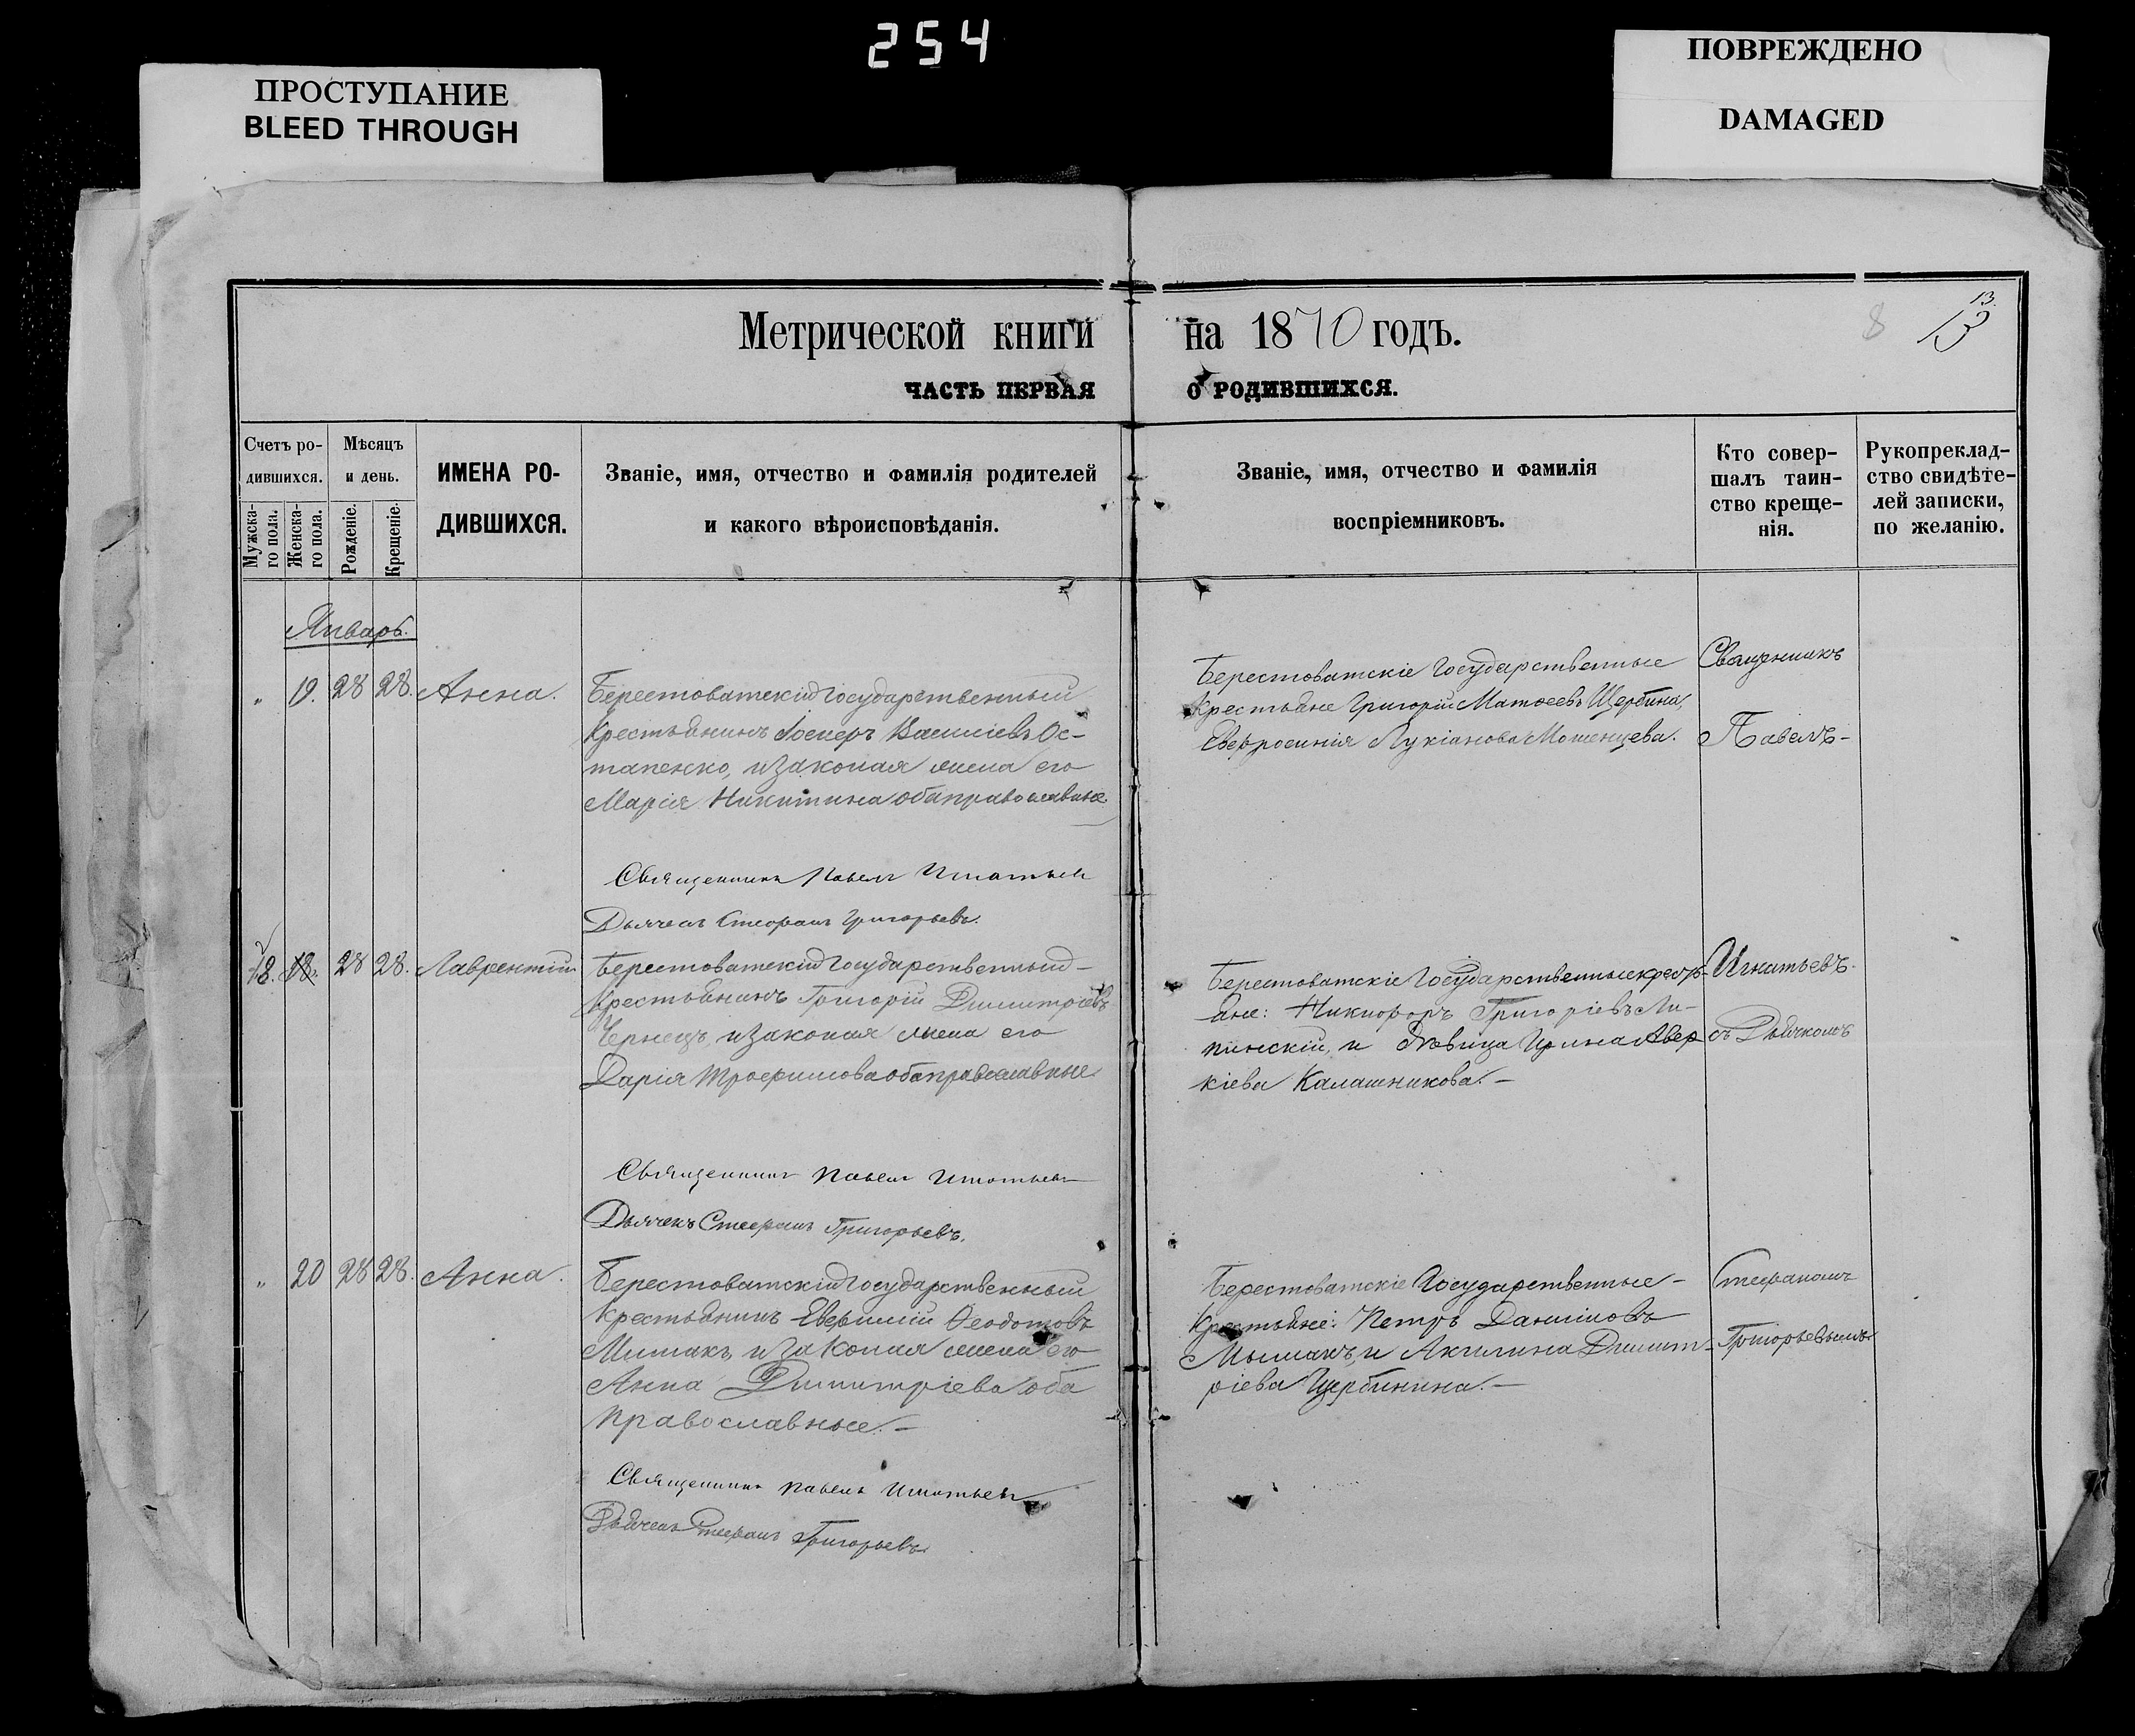 254
ПРОСТУПАНИЕ
BLEED THROUGH
ПОВРЕЖДЕНО
DAMAGED
Метрической книги на 1870 годъ.
13.
13
8
ЧАСТЬ ПЕРВАЯ О РОДИВШИХСЯ.
Счетъ ро-
дившихся.
Мужска-
го пола.
Женска-
го пола.
Мѣсяцъ
и день.
Рожденіе.
Крещеніе.
ИМЕНА РО-
ДИВШИХСЯ.
Званіе, имя, отчество и фамилія родителей
и какого вѣроисповѣданія.
Званіе, имя, отчество и фамилія
воспріемниковъ.
Кто совер-
шалъ таин-
ство креще-
нія.
Рукоприклад-
ство свидѣте-
лей записки,
по желанію.
Январь.
" 19. 28 28. Анна.
Берестоватскій Государственный
Крестьянинъ Іосифъ Василіевъ Ос-
тапенко, и законная жена его
Марія Никитина оба православные
Священникъ Павелъ Игнатьевъ
Дьячекъ Стефанъ Григорьевъ.
Берестоватскіе Государственные
Крестьяне Григорій Матѳеевъ Щербина,
Евфросинія Лукіанова Мошенцева.
Священникъ
Павелъ-
18. 18. 28 28. Лаврентій
Берестоватскій Государственный-
Крестьянинъ Григорій Димитріевъ
Чернецъ, и законная жена его
Дарія Трофимова оба православные
Священникъ Павелъ Игнатьевъ
Дьячекъ Стефанъ Григорьевъ.
Берестоватскіе Государственные кресть-
яне: Никифоръ Григоріевъ Ли-
пинскій, и дѣвица Ирина Авер
кіева Калашникова.-
Игнатьевъ.
съ Дьячкомъ
" 20 28 28. Анна.
Берестоватскій Государственный
Крестьянинъ Евфимій Ѳеодотовъ
Мишакъ, и законная жена его
Анна Димитріева оба
православные.-
Священникъ Павелъ Игнатьевъ
Дьячекъ Стефанъ Григорьевъ.
Берестоватскіе Государственные-
Крестьяне: Петръ Даниловъ
Мышакъ, и Акилина Димит-
ріева Щербинина.-
Стефаномъ
Григорьевымъ